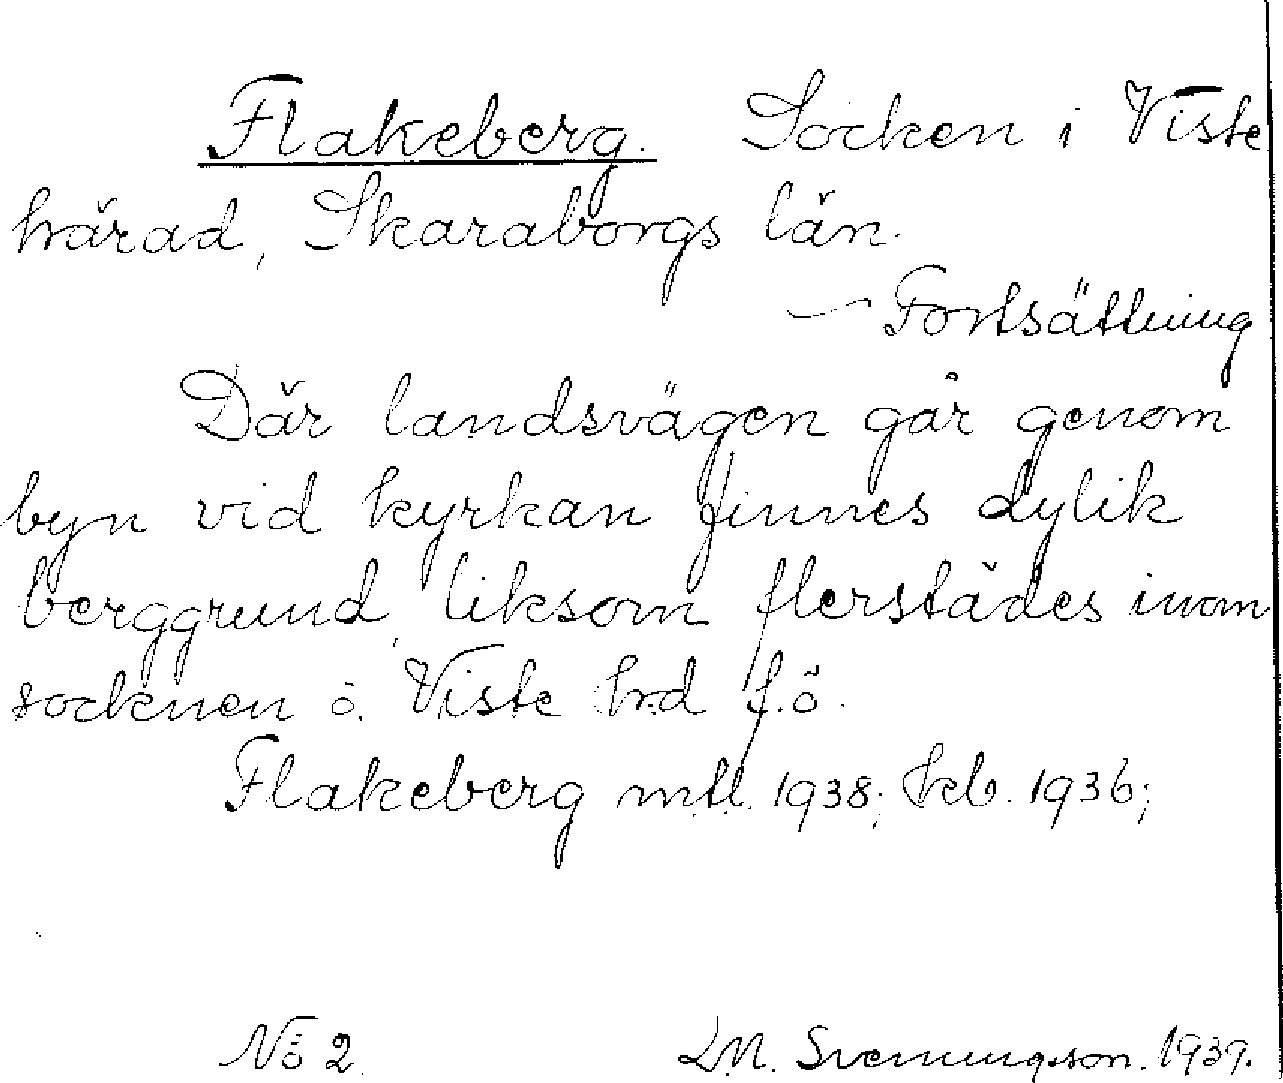 Flakeberg. Socken i Viste
härad, Skaraborgs län.
— Fortsättning
Där landsvägen går genom
byn vid kyrkan finnes dylik
berggrund, liksom flerstädes inom
socknen o. Viste hrd f.ö.
Flakeberg mtl. 1938; kb. 1936;
No 2 M. Svenungsson. 1939.